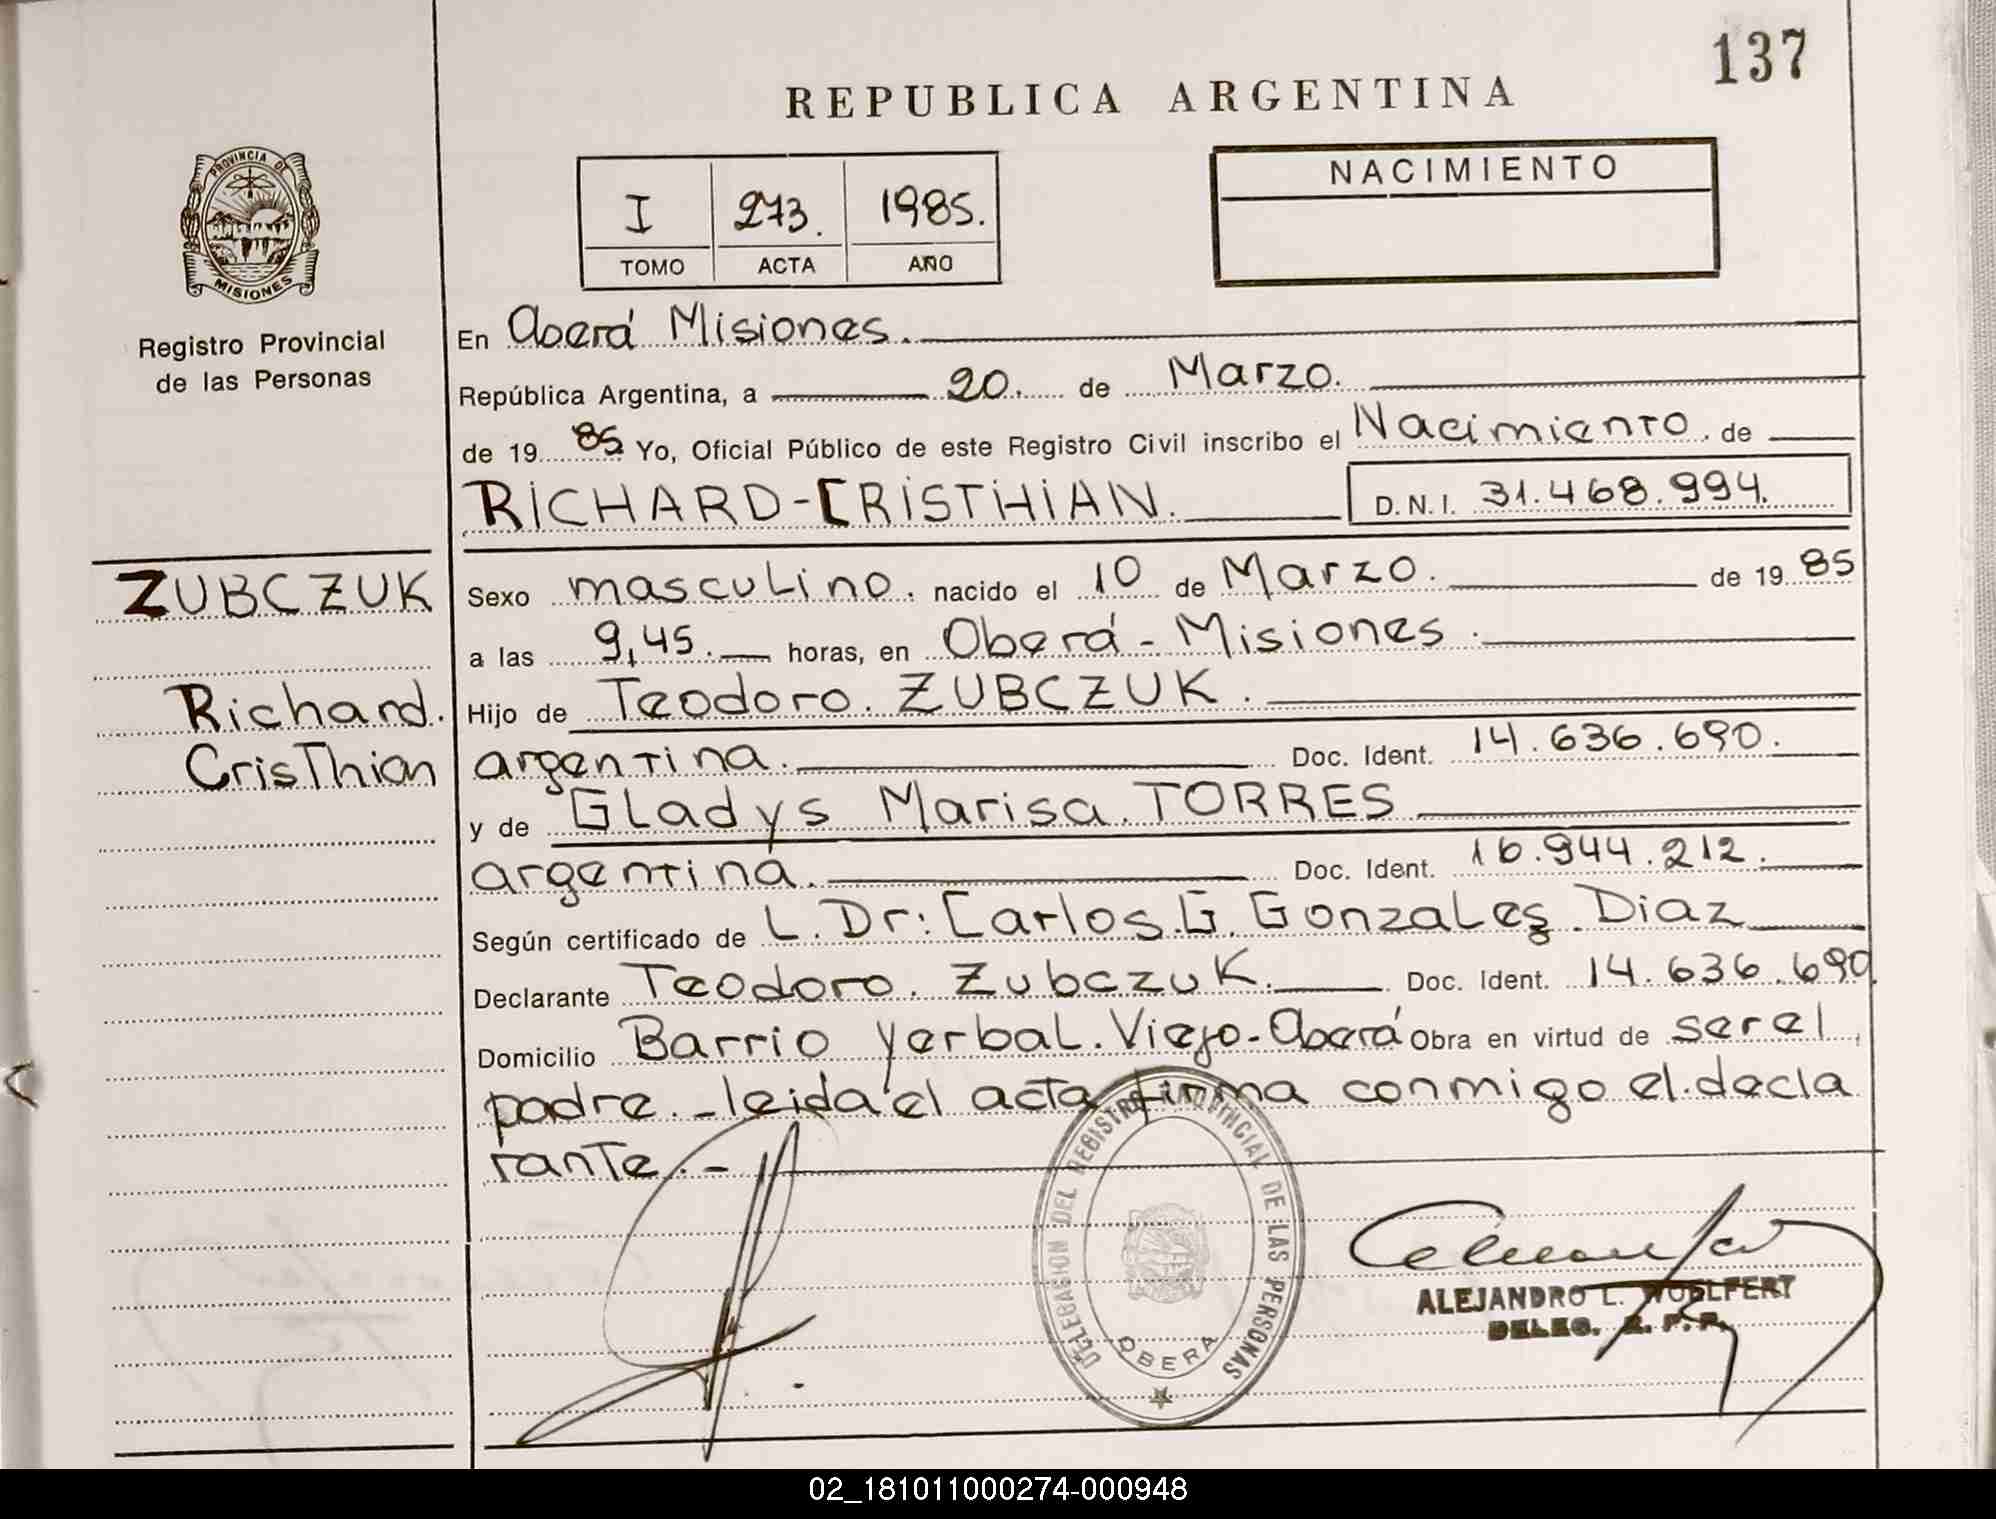 137
REPUBLICA ARGENTINA
PROVINCIA DE
MISIONES
Registro Provincial
de las Personas
I 273. 1985.
TOMO ACTA AÑO
NACIMIENTO
En Oberá Misiones.
República Argentina, a 20. de Marzo.
de 19 85 Yo, Oficial Público de este Registro Civil inscribo el Nacimiento. de
RICHARD-CRISTHIAN. D.N.I. 31.468.994.
ZUBCZUK
Richard.
Cristhian
Sexo masculino. nacido el 10 de Marzo. de 19 85
a las 9,45. horas, en Oberá - Misiones.
Hijo de Teodoro. ZUBCZUK.
argentina. Doc. Ident. 14.636.690.
y de Gladys Marisa. TORRES
argentina. Doc. Ident. 16.944.212.
Según certificado de L. Dr: Carlos. G. Gonzales. Diaz
Declarante Teodoro. Zubczuk. Doc. Ident. 14.636.690
Domicilio Barrio Yerbal. Viejo-Oberá Obra en virtud de ser el
padre.-leida el acta firma conmigo el.decla
rante.-
DELEGACION DEL REGISTRO PROVINCIAL DE LAS PERSONAS
OBERA
ALEJANDRO L. WOELFERT
DELEG. R. P. P.
02_181011000274-000948